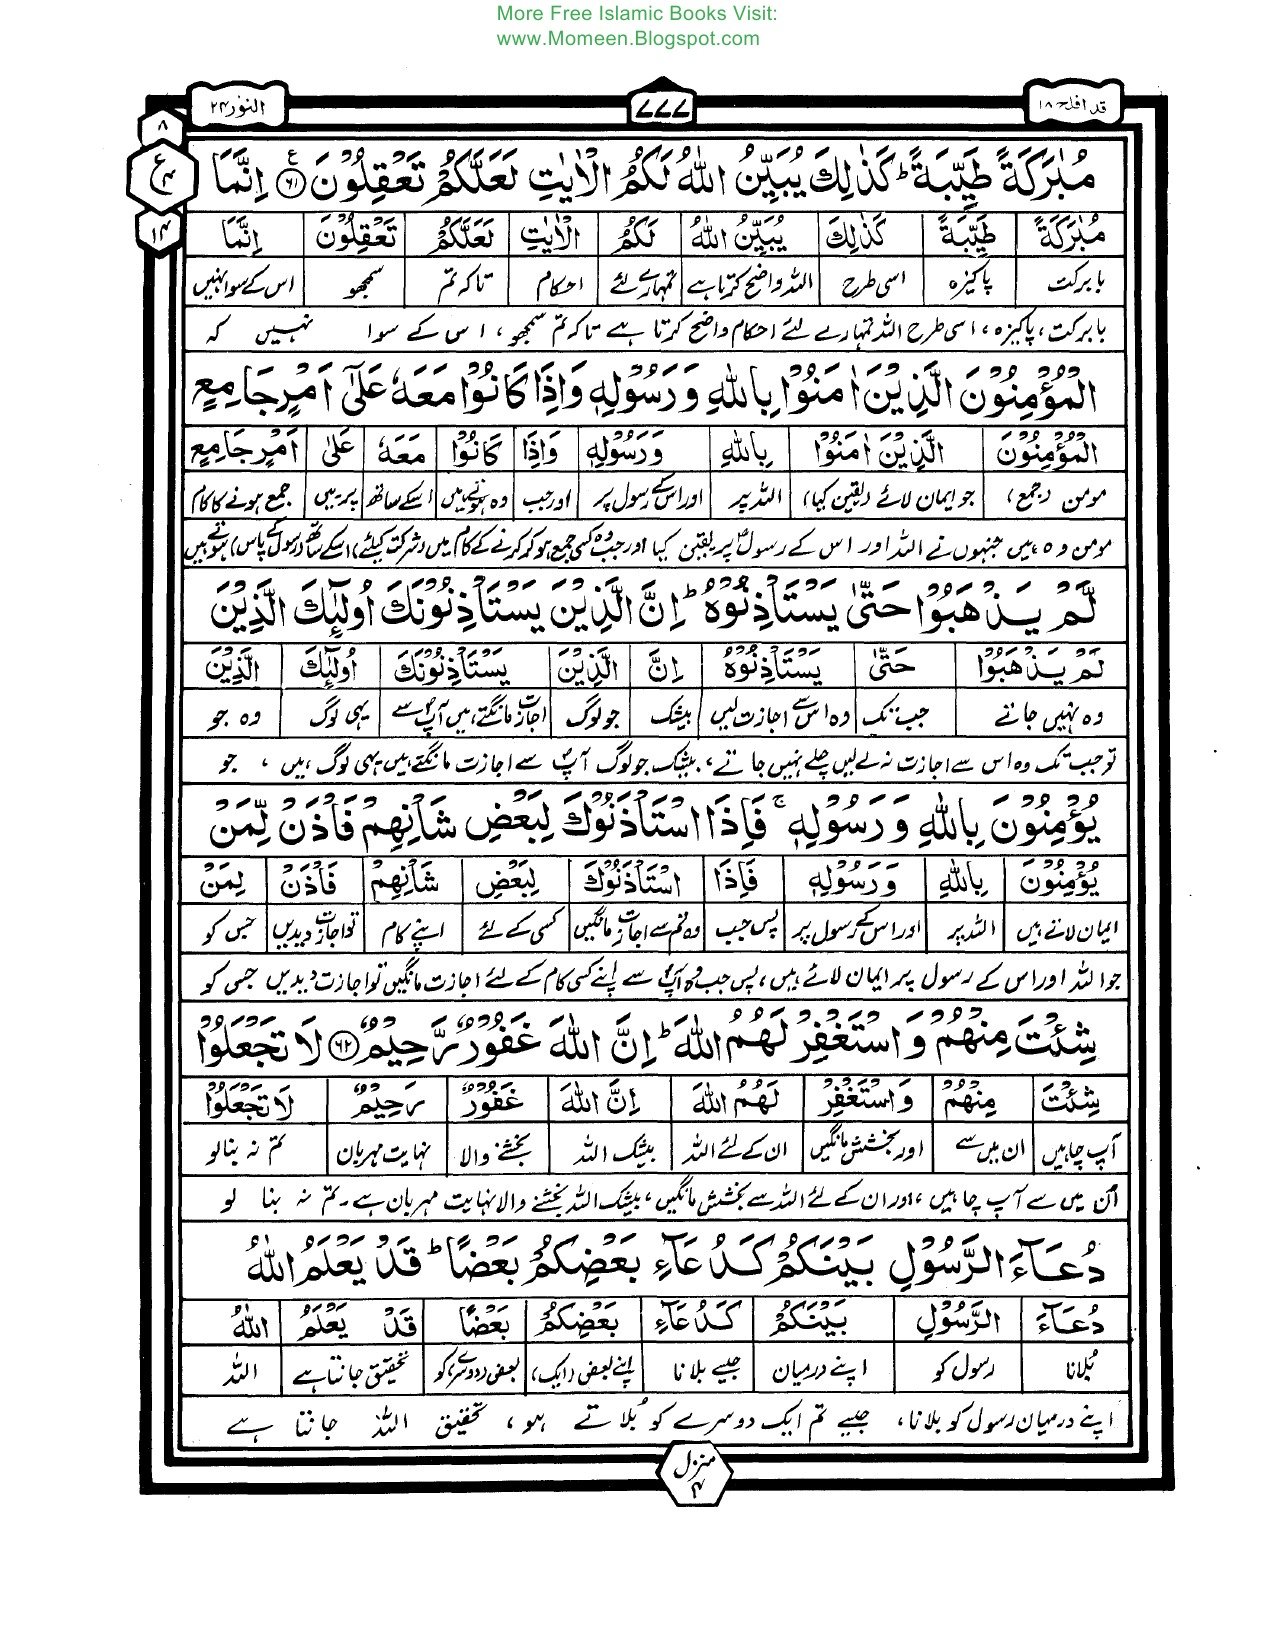 More Free Islamic Books Visit:
www.Momeen.Blogspot.com
قد افلح ۱۸
۷۷۷
النور ۲۴
۸
ع
۴
۱۴
مُبٰرَكَةً طَيِّبَةً ؕ كَذٰلِكَ يُبَيِّنُ اللّٰهُ لَكُمُ الْاٰيٰتِ لَعَلَّكُمْ تَعْقِلُوْنَ ۶۱ اِنَّمَا
مُبٰرَكَةً طَيِّبَةً كَذٰلِكَ يُبَيِّنُ اللّٰهُ لَكُمُ الْاٰيٰتِ لَعَلَّكُمْ تَعْقِلُوْنَ اِنَّمَا
بابرکت پاکیزہ اسی طرح اللہ واضح کرتا ہے تمہارے لئے احکام تاکہ تم سمجھو اس کے سوا نہیں
بابرکت، پاکیزہ، اسی طرح اللہ تمہارے لئے احکام واضح کرتا ہے تاکہ تم سمجھو، اس کے سوا نہیں کہ
الْمُؤْمِنُوْنَ الَّذِيْنَ اٰمَنُوْا بِاللّٰهِ وَرَسُوْلِهٖ وَاِذَا كَانُوْا مَعَهٗ عَلٰٓى اَمْرٍ جَامِعٍ
الْمُؤْمِنُوْنَ الَّذِيْنَ اٰمَنُوْا بِاللّٰهِ وَرَسُوْلِهٖ وَاِذَا كَانُوْا مَعَهٗ عَلٰى اَمْرٍ جَامِعٍ
مومن (جمع) جو ایمان لائے (یقین کیا) اللہ پر اور اس کے رسول پر اور جب وہ ہوتے ہیں اسکے ساتھ پر میں جمع ہونے کا کام
مومن وہ ہیں جنہوں نے اللہ اور اس کے رسول پر یقین کیا اور جب وہ کسی جمع ہو کر کرنے کے کام میں (شرکت کیلئے) اسکے ساتھ (رسول کے پاس) ہوتے ہیں
لَّمْ يَذْهَبُوْا حَتّٰى يَسْتَاْذِنُوْهُ ؕ اِنَّ الَّذِيْنَ يَسْتَاْذِنُوْنَكَ اُولٰٓئِكَ الَّذِيْنَ
لَمْ يَذْهَبُوْا حَتّٰى يَسْتَاْذِنُوْهُ اِنَّ الَّذِيْنَ يَسْتَاْذِنُوْنَكَ اُولٰٓئِكَ الَّذِيْنَ
وہ نہیں جاتے جب تک وہ اس سے اجازت لیں بیشک جو لوگ اجازت مانگتے ہیں آپؐ سے یہی لوگ وہ جو
تو جب تک وہ اس سے اجازت نہ لے لیں چلے نہیں جاتے، بیشک جو لوگ آپؐ سے اجازت مانگتے ہیں یہی لوگ ہیں، جو
يُؤْمِنُوْنَ بِاللّٰهِ وَرَسُوْلِهٖ ۚ فَاِذَا اسْتَاْذَنُوْكَ لِبَعْضِ شَاْنِهِمْ فَاْذَنْ لِّمَنْ
يُؤْمِنُوْنَ بِاللّٰهِ وَرَسُوْلِهٖ فَاِذَا اسْتَاْذَنُوْكَ لِبَعْضِ شَاْنِهِمْ فَاْذَنْ لِمَنْ
ایمان لاتے ہیں اللہ پر اور اس کے رسول پر پس جب وہ تم سے اجازت مانگیں کسی کے لئے اپنے کام تو اجازت دیدیں جس کو
جو اللہ اور اس کے رسول پر ایمان لاتے ہیں، پس جب وہ آپؐ سے اپنے کسی کام کے لئے اجازت مانگیں تو اجازت دیدیں جس کو
شِئْتَ مِنْهُمْ وَاسْتَغْفِرْ لَهُمُ اللّٰهَ ؕ اِنَّ اللّٰهَ غَفُوْرٌ رَّحِيْمٌ ۶۲ لَا تَجْعَلُوْا
شِئْتَ مِنْهُمْ وَاسْتَغْفِرْ لَهُمُ اللّٰهَ اِنَّ اللّٰهَ غَفُوْرٌ رَحِيْمٌ لَا تَجْعَلُوْا
آپ چاہیں ان میں سے اور بخشش مانگیں ان کے لئے اللہ بیشک اللہ بخشنے والا نہایت مہربان تم نہ بنا لو
اُن میں سے آپ چاہیں، اور ان کے لئے اللہ سے بخشش مانگیں، بیشک اللہ بخشنے والا نہایت مہربان ہے۔ تم نہ بنا لو
دُعَآءَ الرَّسُوْلِ بَيْنَكُمْ كَدُعَآءِ بَعْضِكُمْ بَعْضًا ؕ قَدْ يَعْلَمُ اللّٰهُ
دُعَآءَ الرَّسُوْلِ بَيْنَكُمْ كَدُعَآءِ بَعْضِكُمْ بَعْضًا قَدْ يَعْلَمُ اللّٰهُ
بُلانا رسول کو اپنے درمیان جیسے بلانا اپنے بعض (ایک) بعض (دوسرے) کو تحقیق جانتا ہے اللہ
اپنے درمیان رسول کو بلانا، جیسے تم ایک دوسرے کو بُلاتے ہو، تحقیق اللہ جانتا ہے
منزل
۴